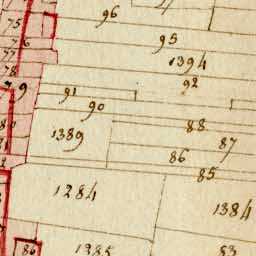 96
75
76
95
77
1394
78
92
79
91
90
88
1389
87
86
85
1284
1384
86
1385
83